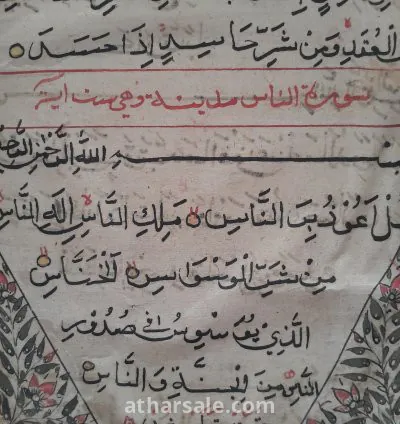 العقد ومن شر حاسد اذا حسد
سورة الناس مدينة وهي ست آية
بسم الله الرحمن الرحيم
قل اعوذ برب الناس ملك الناس اله الناس
من شر الوسواس الخناس
الذي يوسوس في صدور
الناس من الجنة والناس
atharsale.com